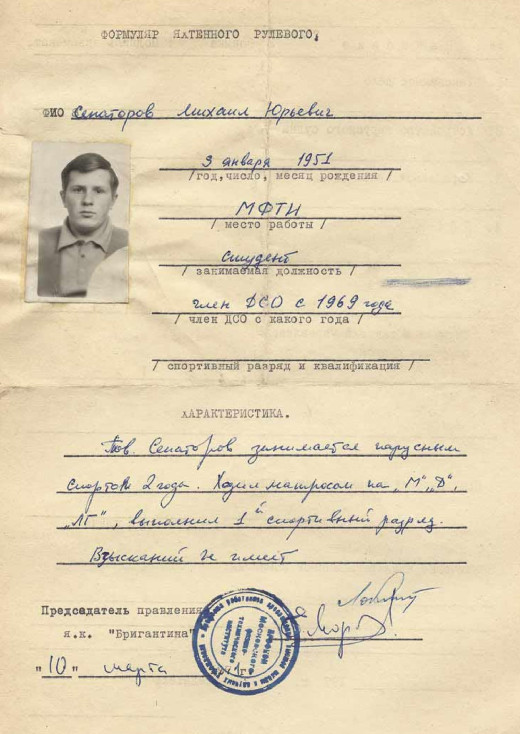 ФОРМУЛЯР ЯХТЕННОГО РУЛЕВОГО.
ФИО Сенаторов Михаил Юрьевич
3 января 1951
/год,число, месяц рождения /
МФТИ
/ место работы /
студент
/ занимаемая должность /
член ДСО с 1969 года
/ член ДСО с какого года /
/ спортивный разряд и квалификация /
ХАРАКТЕРИСТИКА.
Тов. Сенаторов занимается парусным
спортом 2 года. Ходил матросом на „М", „Д",
„ЛГ", выполнил 1й спортивный разряд.
Взысканий не имеет
Председатель правления
я.к. "Бригантина"
"10" марта 1971г.
Московского
физико-
технического
института